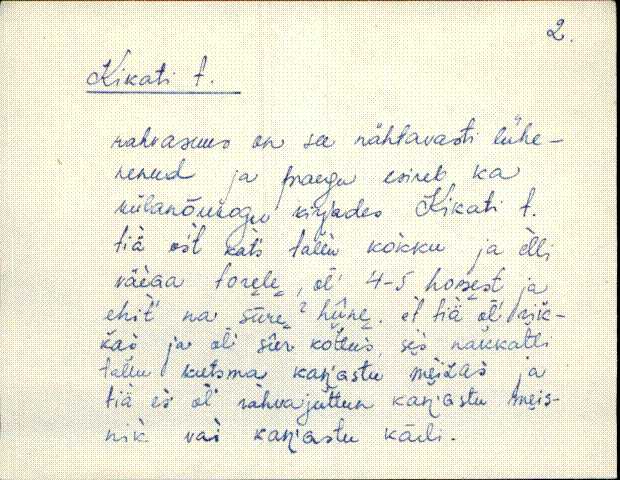 2.
Kikati t.
rahvasuus on see nähtavasti lühe-
nenud ja praegu esineb ka
külanõukogu kirjades Kikati t.
tiä òst kàt's tallu kokku ja èlli
väèGa torele, ol' 4-5 hobest ja
ehit' na sūre hūne. et tiä ol' rik-
kas ja ol' sūr kòttus, sès nakkatti
tallu kutsma kaŋ'astu mèizas ja
tiä es ol' rahvajuttun kaŋ'astu meis-
nik vai kaŋ'astu kārli.